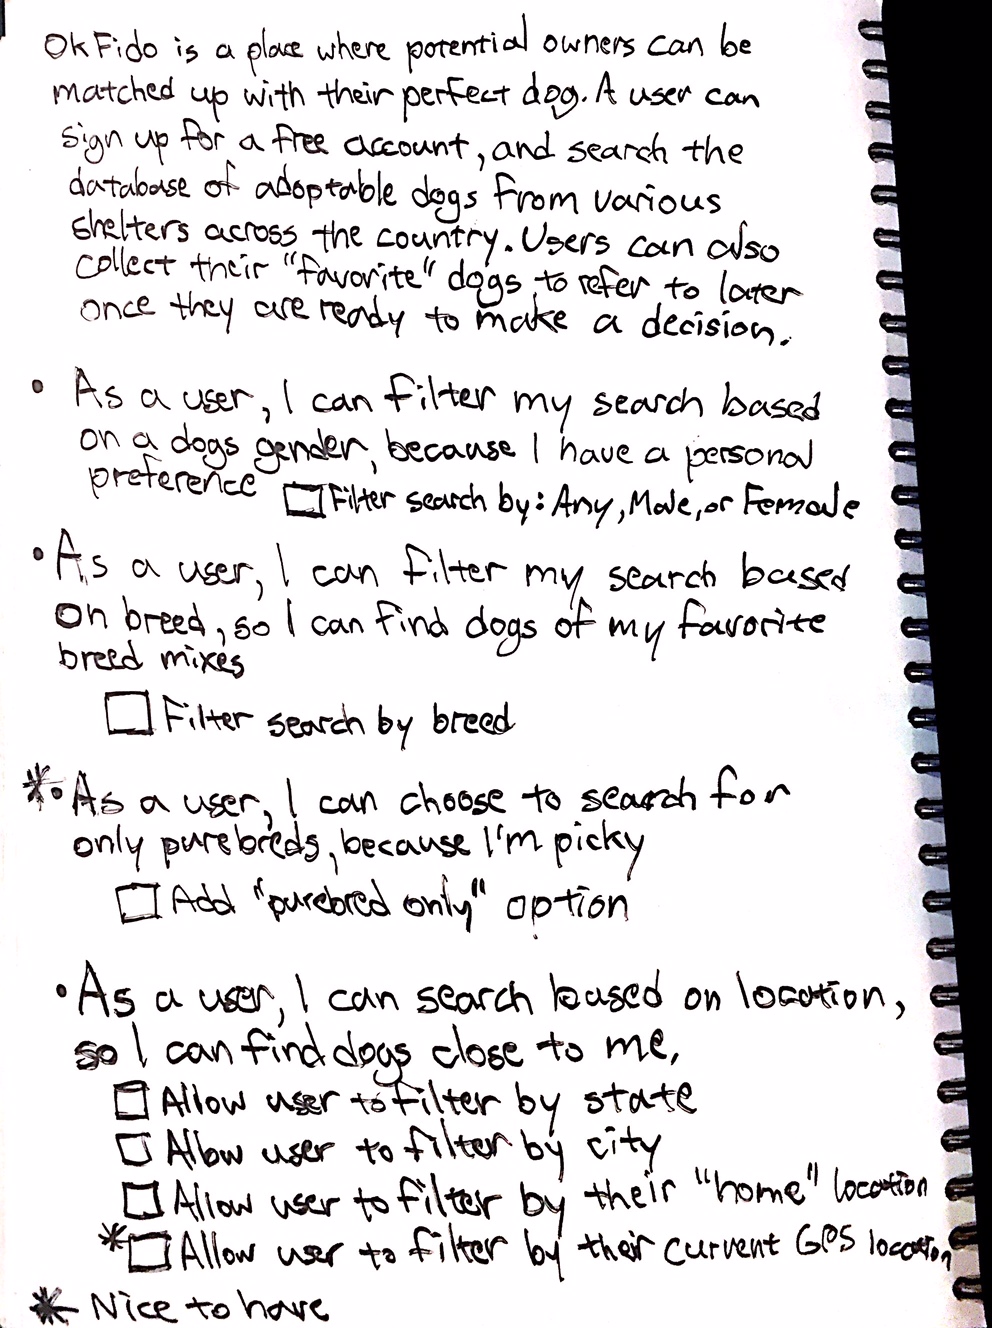 OkFido is a place where potential owners can be
matched up with their perfect dog. A user can
sign up for a free account, and search the
database of adoptable dogs from various
shelters across the country. Users can also
collect their "favorite" dogs to refer to later
once they are ready to make a decision.
• As a user, I can filter my search based
on a dogs gender, because I have a personal
preference
☐ Filter search by: Any, Male, or Female
• As a user, I can filter my search based
on breed, so I can find dogs of my favorite
breed mixes
☐ Filter search by breed
*• As a user, I can choose to search for
only purebreds, because I'm picky
☐ Add "purebred only" option
• As a user, I can search based on location,
so I can find dogs close to me,
☐ Allow user to filter by state
☐ Allow user to filter by city
☐ Allow user to filter by their "home" location
*☐ Allow user to filter by their current GPS location
* Nice to have